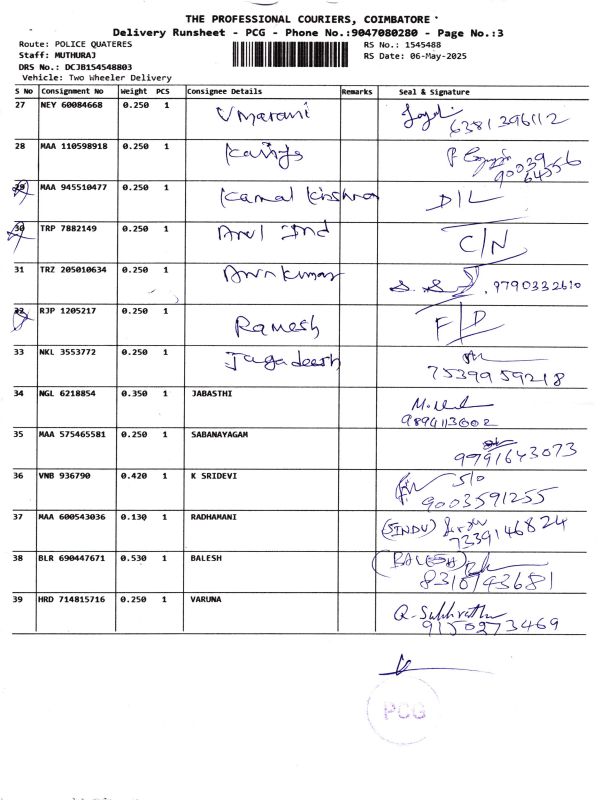 THE PROFESSIONAL COURIERS, COIMBATORE
Delivery Runsheet - PCG - Phone No.:9047080280 - Page No.:3
Route: POLICE QUATERES
RS No.: 1545488
Staff: MUTHURAJ
RS Date: 06-May-2025
DRS No.: DCJB154548803
Vehicle: Two Wheeler Delivery
S No Consignment No Weight PCS Consignee Details Remarks Seal & Signature
27 NEY 60084668 0.250 1 Vmarani
6381396112
28 MAA 110598918 0.250 1
90039
64556
29 MAA 945510477 0.250 1 Kamal Krishna D/L
30 TRP 7882149 0.250 1 Arul Ind C/N
31 TRZ 205010634 0.250 1 Arun kumar 9790332610
32 RJP 1205217 0.250 1 Ramesh F/D
33 NKL 3553772 0.250 1 Jagadeesh
7539959218
34 NGL 6218854 0.350 1 JABASTHI
9894113602
35 MAA 575465581 0.250 1 SABANAYAGAM
9791643073
36 VNB 936790 0.420 1 K SRIDEVI S/o
9003591255
37 MAA 600543036 0.130 1 RADHAMANI (SINDU)
7339146824
38 BLR 690447671 0.530 1 BALESH (BALESH)
8310793681
39 HRD 714815716 0.250 1 VARUNA
9150273469
PCG